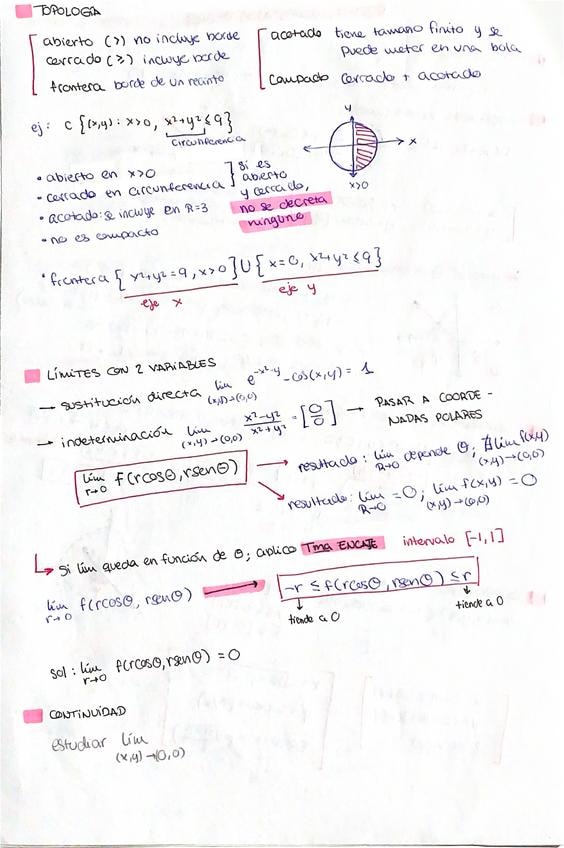 TOPOLOGÍA
abierto (>) no incluye borde
cerrado (≥) incluye borde
frontera borde de un recinto
acotado tiene tamaño finito y se
puede meter en una bola
Compacto cerrado + acotado
ej: C {(x,y) : x>0, x²+y² ≤ 9}
circunferencia
y
x
x>0
• abierto en x>0
• cerrado en circunferencia
• acotado: se incluye en R=3
• no es compacto
si es
abierto
y cerrado,
no se decreta
ninguno
• frontera { x²+y²=9, x>0 } U { x=0, x²+y² ≤ 9 }
eje x
eje y
LÍMITES CON 2 VARIABLES
→ sustitución directa lim (x,y)→(0,0) e^-x²-y - cos(x,y) = 1
→ indeterminación lim (x,y)→(0,0) x²-y²/x²+y² = [0/0] → PASAR A COORDE-
NADAS POLARES
lim r→0 f(rcosθ, rsenθ)
resultado: lim R→0 depende θ; ∄ lim f(x,y) (x,y)→(0,0)
resultado: lim R→0 = 0; lim f(x,y) (x,y)→(0,0) = 0
↳ Si lim queda en función de θ; aplico Tma ENCAJE intervalo [-1,1]
lim r→0 f(rcosθ, rsenθ) → -r ≤ f(rcosθ, rsenθ) ≤ r
tiende a 0
tiende a 0
sol: lim r→0 f(rcosθ, rsenθ) = 0
CONTINUIDAD
estudiar lim
(x,y)→(0,0)